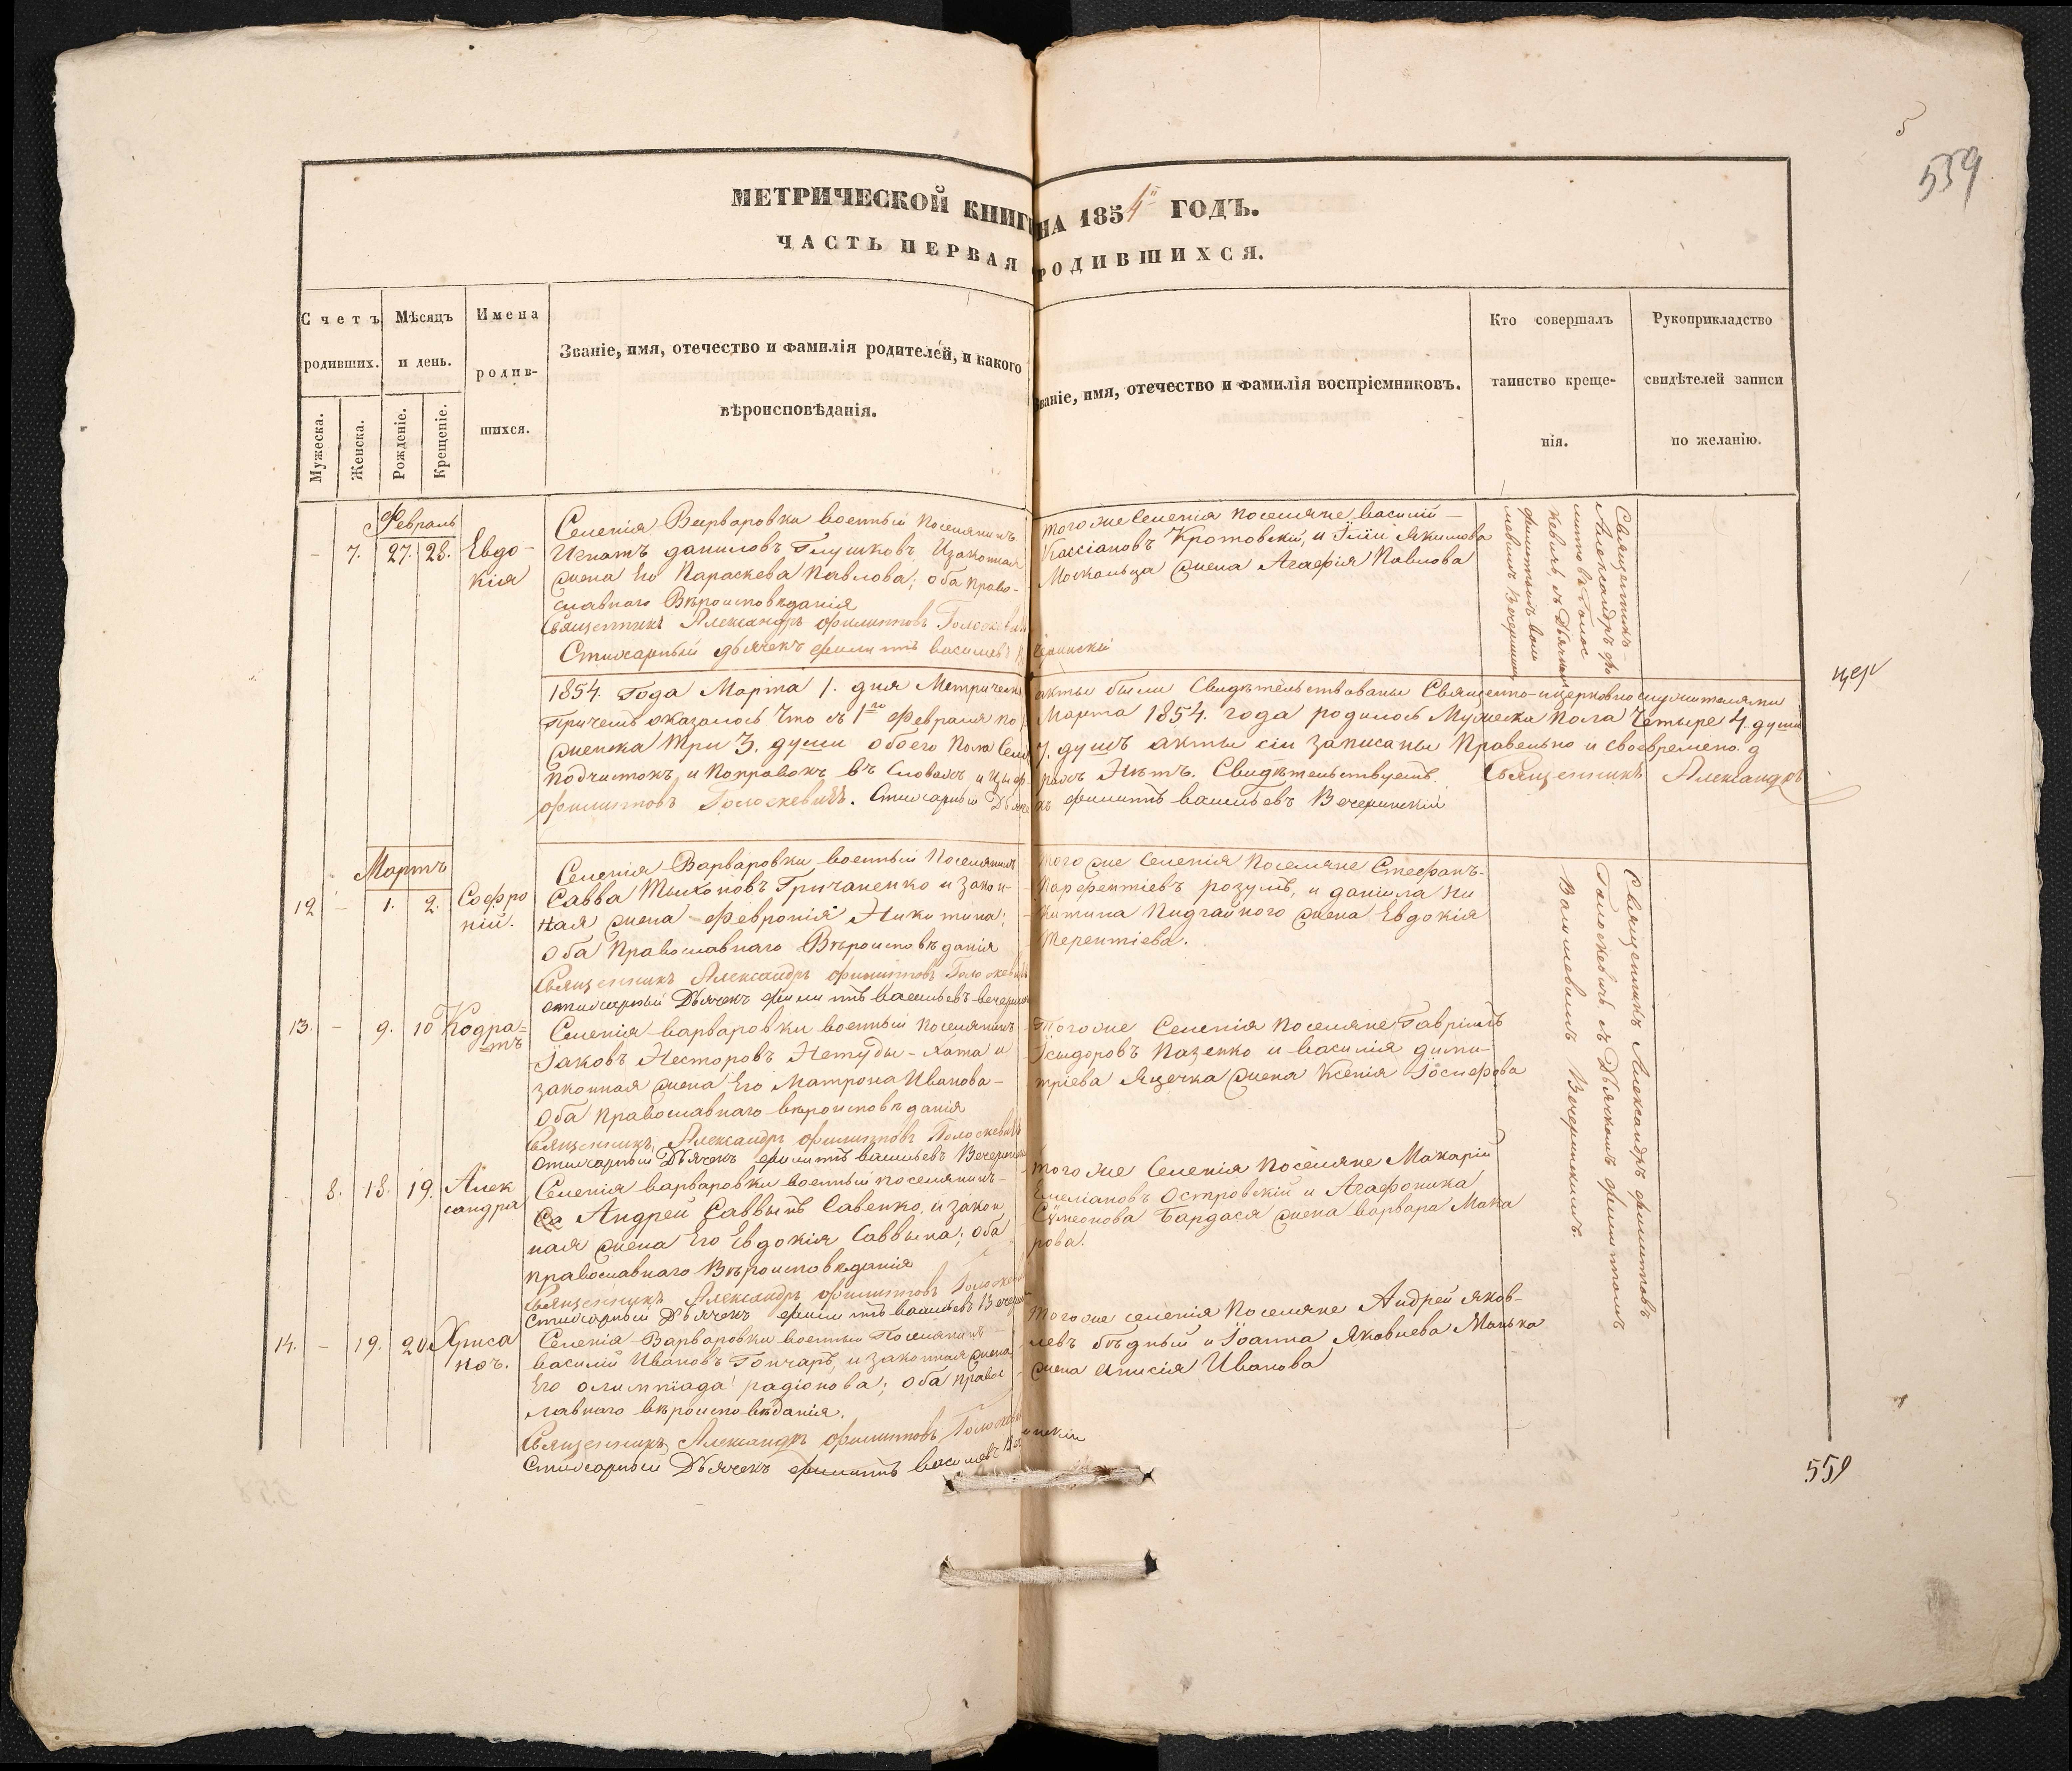 5
559
МЕТРИЧЕСКОЙ КНИГИ НА 1854й ГОДЪ.
ЧАСТЬ ПЕРВАЯ РОДИВШИХСЯ.
Счетъ родивших.
Мужеска.
Женска.
Мѣсяцъ и день.
Рожденіе.
Крещеніе.
Имена родив-
шихся.
Званіе, имя, отечество и фамилія родителей, и какого
вѣроисповѣданія.
Званіе, имя, отечество и фамилія воспріемниковъ.
Кто совершалъ
таинство креще-
нія.
Рукоприкладство
свидѣтелей записи
по желанію.
Февраль
– 7. 27. 28. Евдо-
кія
Селенія Варваровки военный поселянинъ
Игнатъ даниловъ Глушковъ изаконная
жена Его Параскева Павлова; оба право-
славнаго Вѣроисповѣданія
Священникъ Александръ филипповъ Голоскевичъ
Стихарный дьячекъ филиппъ васильевъ Вечеринскій
того же Селенія поселяне василій
Кассіановъ Кротовскій, и Іліи Якимова
Москальца жена Агафія Павлова
Священникъ
Александръ фи-
липповъ Голос
кевичъ, съ Дьячкомъ
филиппомъ Васи
левимъ Вечеринским
1854. Года Марта 1. дня Метрическіе акты были Свидѣтельствованы Священно-ицерковнослужителями
Причемъ оказалось что съ 1го февраля по 1. Марта 1854. года родилось Мужеска пола Четыре 4. души
Женска три 3. души обоего пола Семь 7. душъ акты сіи записаны правельно и своевремено. д
подчистокъ, и поправокъ въ Словахъ и Цыфрахъ Нѣтъ. Свидѣтельствуетъ. Священникъ Александръ
филипповъ Голоскевичъ. Стихарный Дьячекъ филиппъ васильевъ Вечеринскій
цер
Мартъ
12 – 1. 2. Софро
ній.
Селенія Варваровки военный поселянинъ
Савва Тихоновъ Гричаненко и закон-
ная жена Февронія Никитина;
оба Православнаго Вѣроисповѣданія
Священникъ Александръ филипповъ Голоскевичъ
стихарный Дьячекъ филиппъ васильевъ вечеринск
того же Селенія Поселяне Стефанъ
Парфентіевъ розумъ, и даніила Ни
китина Пидгайного жена Евдокія
Терентіева.
Священникъ Александръ филипповъ
Голоскевичъ съ Дьячкомъ филиппомъ
Василевимъ Вечеринскимъ.
13. – 9. 10 Кодра-
тъ
Селенія варваровки военный поселянинъ
Іаковъ Несторовъ Нетуды-Хата и
законная жена Его Матрона Иванова
Оба православнаго вѣроисповѣданія
Священникъ, Александръ филипповъ Голоскевичъ
стихарный Дьячекъ филиппъ васильевъ Вечеринск
Того же Селенія поселяне Гавріилъ
Ісыдоровъ Пазенко и василія дими-
тріева Яцечка жена Ксенія Іосифова
8. 18. 19. Алек
сандра
Селенія варваровки военный поселянинъ
Андрей Саввынъ Савенко, и закон
ная жена Его Евдокія Саввына; оба
православнаго Вѣроисповѣданія
Священникъ Александръ филипповъ Голоскевичъ
Стихарный Дьячекъ филиппъ васильевъ Вечерин
того же Селенія поселяне Макарій
Емеліановъ Островскій и Агафоника
Сѵмеонова Бардася жена варвара Мака
рова.
14. – 19. 20. Хриса
нѳъ.
Селенія Варваровки военный Поселянинъ
василій Ивановъ Гончаръ, и законная жена
Его олимпіада радіонова; оба правос
лавнаго вѣроисповѣданія.
Священникъ Александръ филипповъ Голоскевич
Стихарный Дьячекъ филиппъ васильевъ Вечеринскій
того же селенія Поселяне Андрей Яков-
левъ бѣдный и Іоанна Яковлева Манька
жена Анисія Иванова
559